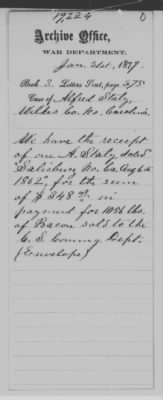 19,224
Archive Office,
WAR DEPARTMENT,
Jan 31st, 1877.
Book 3, Letters Sent, page 275
Case of Alfred Staly,
Wilkes Co. No. Carolina,
We have the receipt
of one A. Staly, dated
"Salisbury No. Ca. Aug 6th
1862", for the sum
of $ 348 in
payment for 1086 lbs.
of Bacon sold to the
C. S. Commy Dept.
(Envelope)